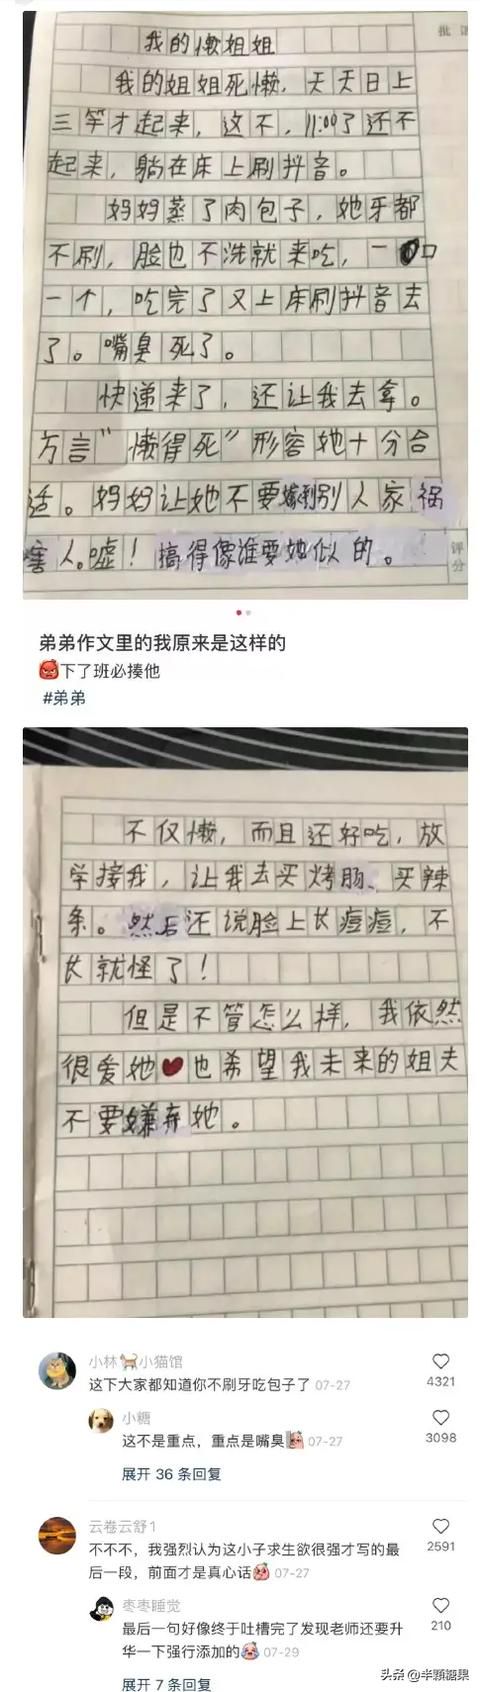 批
我的懒姐姐
我的姐姐死懒，天天日上
三竿才起来，这不，11:00了还不
起来，躺在床上刷抖音。
妈妈蒸了肉包子，她牙都
不刷，脸也不洗就来吃，一口
一个，吃完了又上床刷抖音去
了。嘴臭死了。
快递来了，还让我去拿。
方言“懒得死”形容她十分合
适。妈妈让她不要嫁到别人家祸
害人。嘘！搞得像谁要她似的。
评分
弟弟作文里的我原来是这样的
下了班必揍他
#弟弟
不仅懒，而且还好吃，放
学接我，让我去买烤肠、买辣
条。然后还说脸上长痘痘，不
长就怪了！
但是不管怎么样，我依然
很爱她❤也希望我未来的姐夫
不要嫌弃她。
小林🐈小猫馆
这下大家都知道你不刷牙吃包子了 07-27
4321
小糖
这不是重点，重点是嘴臭 07-27
3098
展开 36 条回复
云卷云舒1
不不不，我强烈认为这小子求生欲很强才写的最
后一段，前面才是真心话 07-27
2591
枣枣睡觉
最后一句好像终于吐槽完了发现老师还要升
华一下强行添加的 07-29
210
展开 7 条回复
头条 @半颗糖果